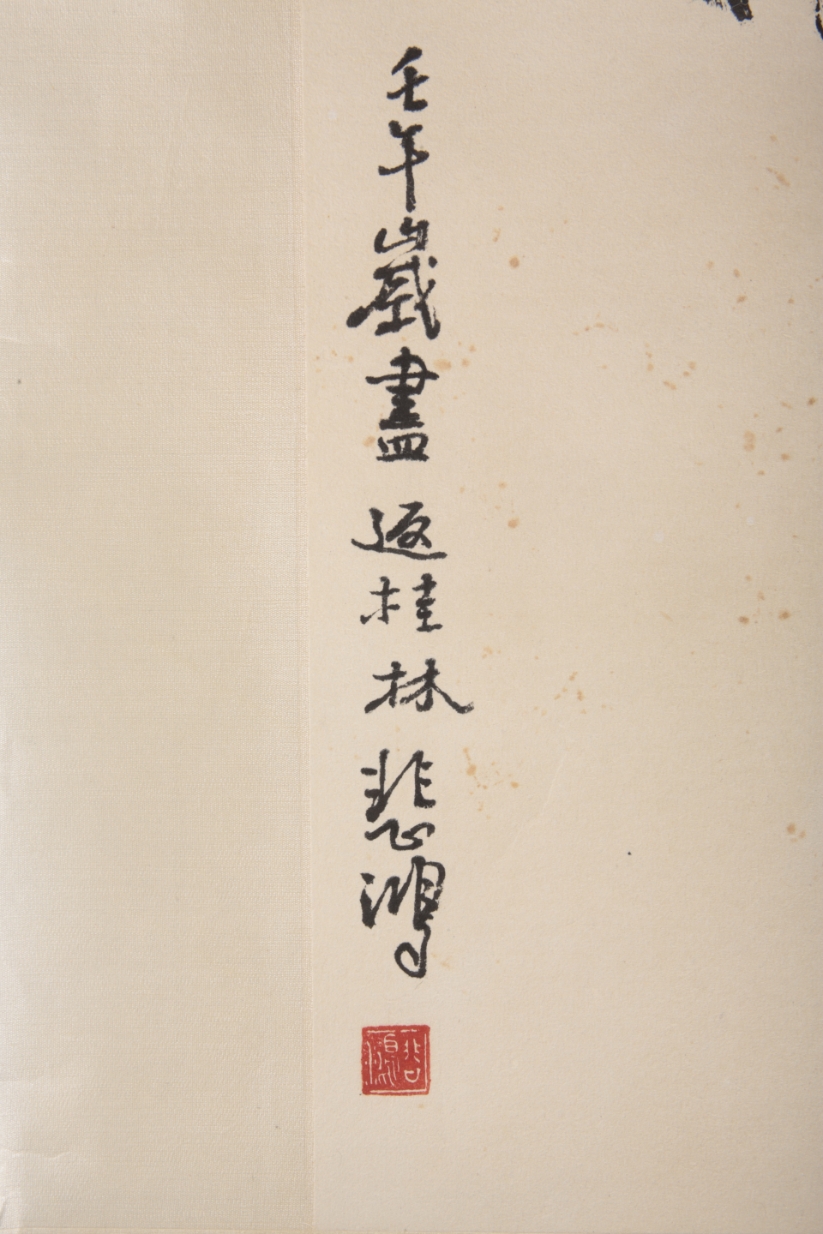 壬午歲盡返桂林悲鴻
悲鴻